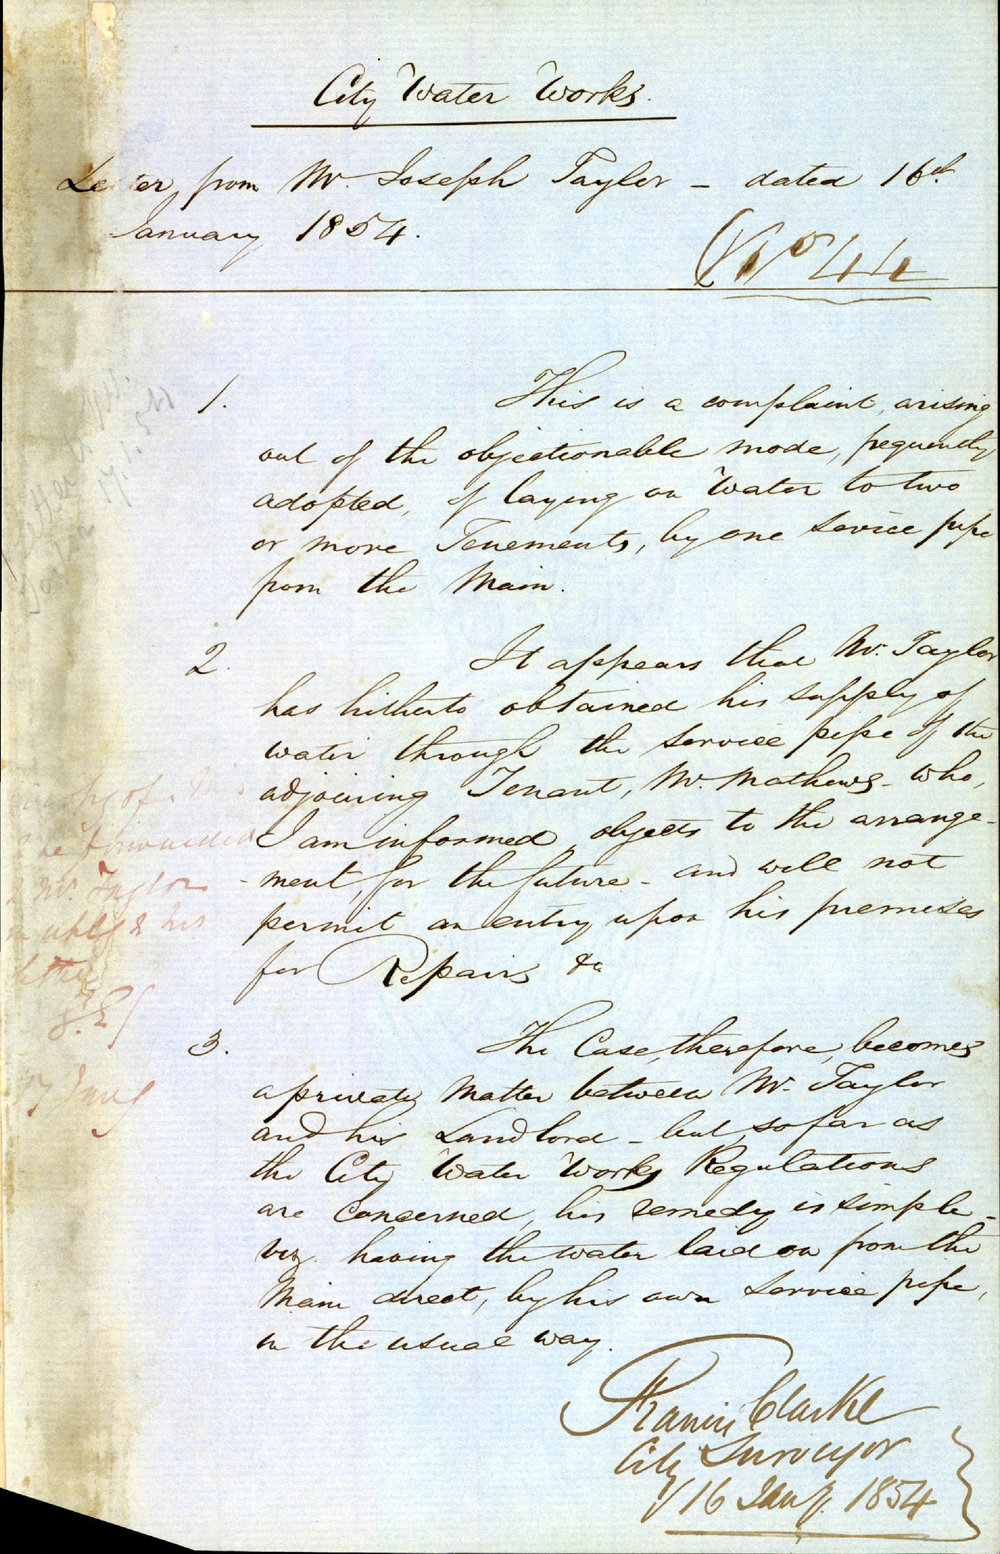 City Water Works.
Letter from Mr. Joseph Taylor – dated 16th
January 1854.
(No 44
1. This is a complaint, arising
out of the objectionable mode, frequently
adopted, of laying on Water to two
or more Tenements, by one Service pipe
from the Main.
2. It appears that Mr. Taylor
has hitherto obtained his supply of
water through the service pipe of the
adjoining Tenant, Mr. Mathews – who,
I am informed, objects to the arrange-
-ment, for the future – and will not
permit an entry upon his premises
for Repairs &c
3. The Case, therefore, becomes
a private Matter between Mr. Taylor
and his Landlord – but, so far as
the City Water Works Regulations
are concerned, his remedy is simple –
viz. having the water laid on from the
Main direct, by his own Service pipe,
in the usual way.
Francis Clarke
City Surveyor
16 Jany. 1854
copy of this
be forwarded
Mr. Taylor
in reply to his
letter